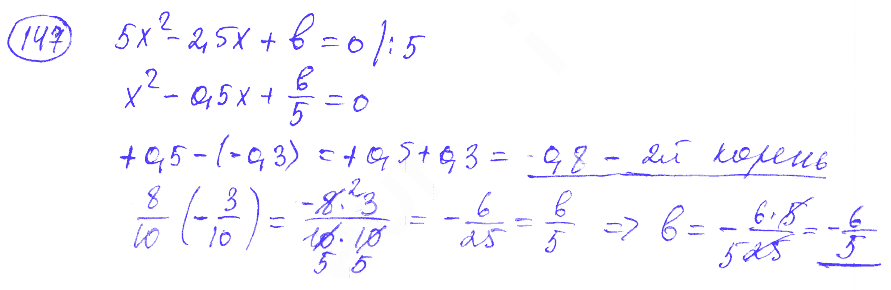 147 5x² - 2,5x + b = 0 /:5
x² - 0,5x + b/5 = 0
+0,5 - (-0,3) = +0,5 + 0,3 = 0,8 - 2й корень
8/10 (-3/10) = (-8·² 3)/(10·10) 5 5 = -6/25 = b/5 => b = - (6·5)/(5 25) = -6/5